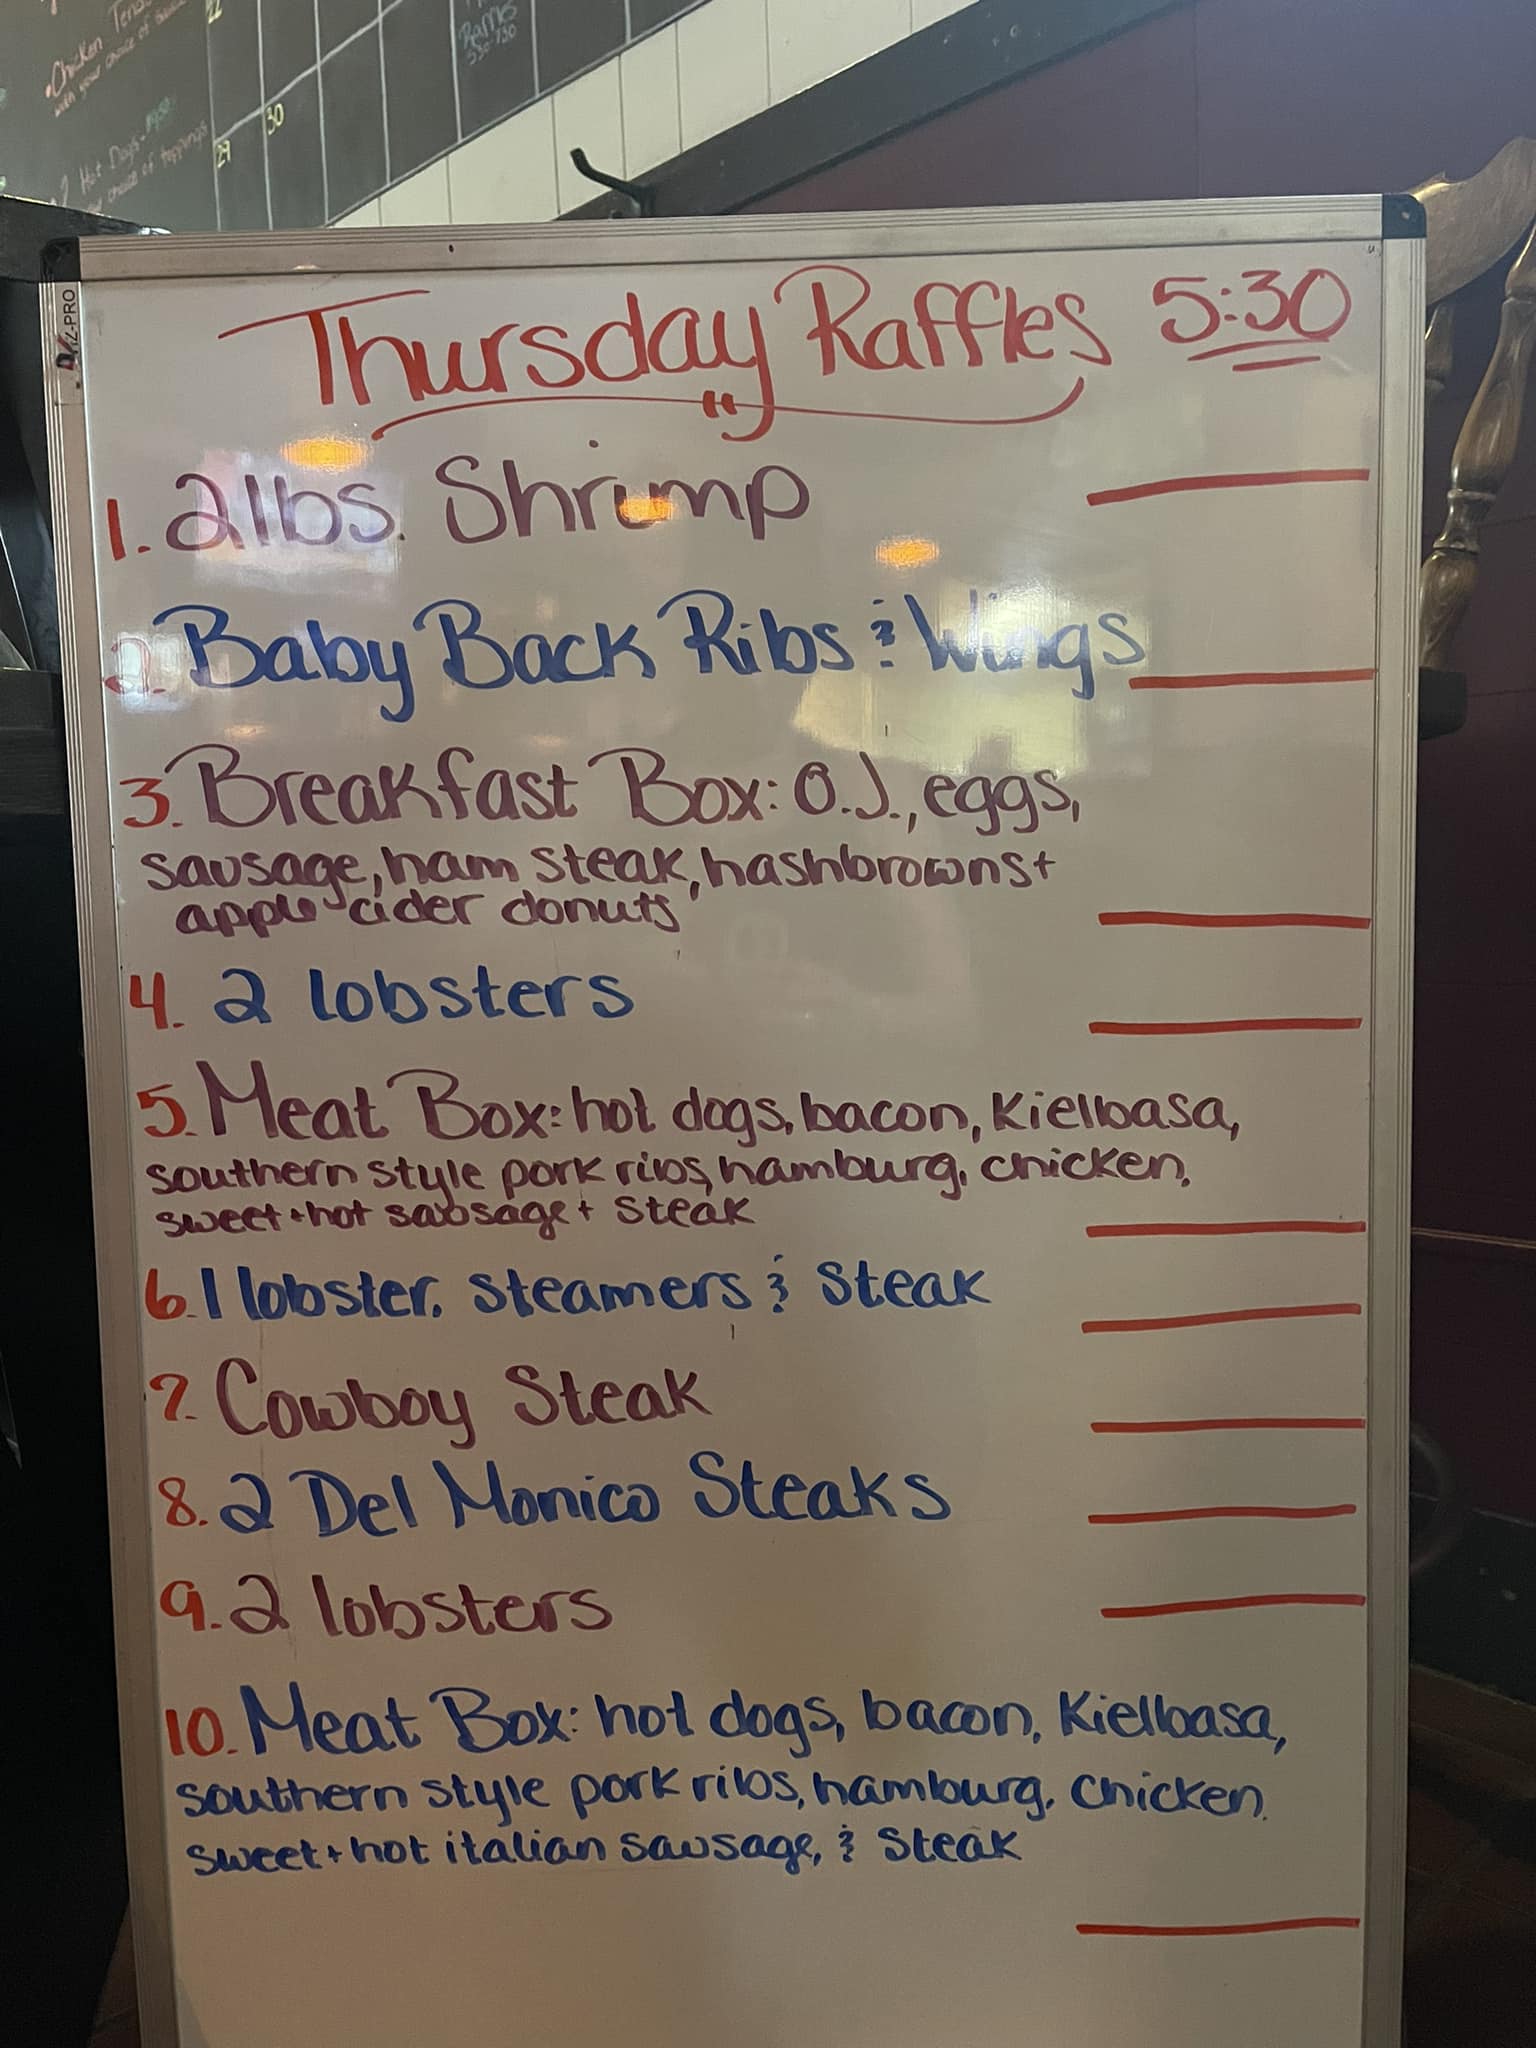 Chicken Tend
with your choice of
Hot Dogs-
choice of toppings
22
29
30
Raffles
530-730
Thursday Raffles 5:30
1. 2lbs. Shrimp
2. Baby Back Ribs & Wings
3. Breakfast Box: O.J., eggs,
sausage, ham steak, hashbrowns +
apple cider donuts
4. 2 lobsters
5. Meat Box: hot dogs, bacon, Kielbasa,
southern style pork ribs, hamburg, chicken,
sweet + hot sausage + Steak
6. 1 lobster, steamers & Steak
7. Cowboy Steak
8. 2 Del Monico Steaks
9. 2 lobsters
10. Meat Box: hot dogs, bacon, Kielbasa,
southern style pork ribs, hamburg, chicken
sweet + hot italian sausage, & Steak